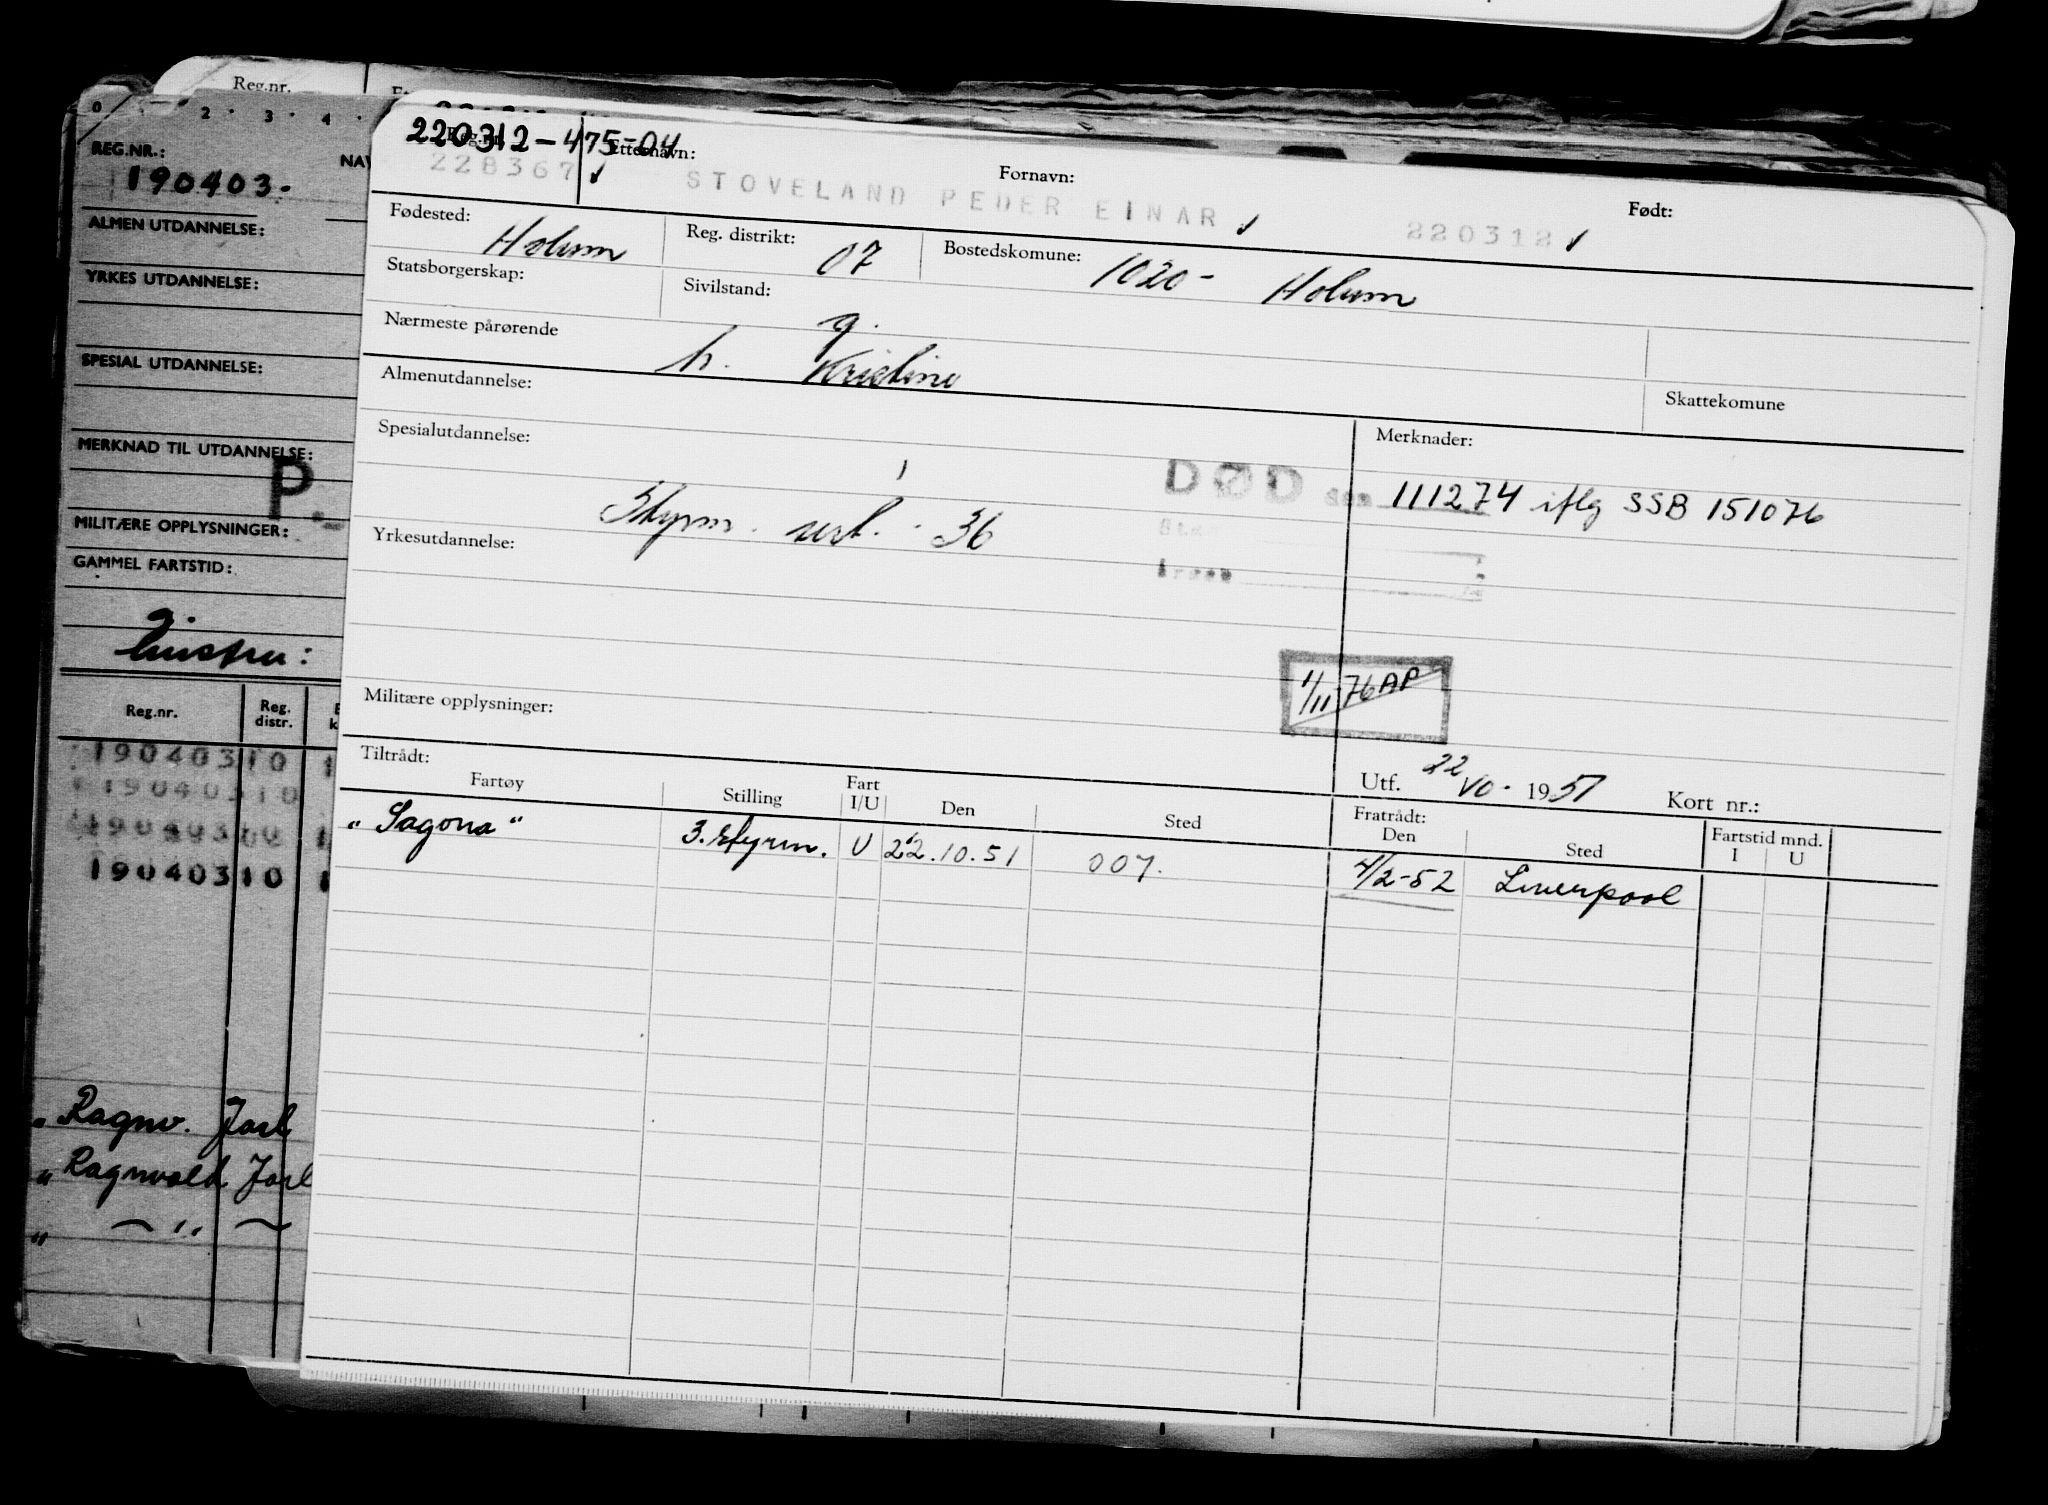 Reg.nr.
0 2 · 3 · 4 ·
REG.NR.:
190403-
ALMEN UTDANNELSE:
YRKES UTDANNELSE:
SPESIAL UTDANNELSE:
MERKNAD TIL UTDANNELSE:
P.
MILITÆRE OPPLYSNINGER:
GAMMEL FARTSTID:
g.
Reg.nr. Reg. distr.
190403 10
190403 10
190403
190403 10
"Ragnv. Jarl
"Ragnvald Jarl
" — " —
220312-475-04
Reg.nr. Etternavn: Fornavn: Født:
228367 ✓ STOVELAND PEDER EINAR ✓ 220312 ✓
Fødested: Holum Reg. distrikt: 07 Bostedskomune: 1020- Holum
Statsborgerskap: Sivilstand: g.
Nærmeste pårørende h. Kristine
Almenutdannelse: Skattekomune
Spesialutdannelse: Merknader:
DØD den 111274 iflg SSB 151076
Styrm. sert. - 36
Yrkesutdannelse:
1/11 76 AP
Militære opplysninger:
Tiltrådt: Utf. 22/10 - 1951 Kort nr.:
Fartøy Stilling Fart I/U Den Sted Fratrådt: Den Sted Fartstid mnd. I U
"Sagona" 3. styrm. U 22.10.51 007. 4/2-52 Liverpool